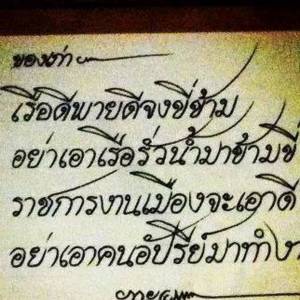 ของเก่า
เรือดีพายดีจงขี่ข้าม
อย่าเอาเรือรั่วน้ำมาข้ามขี่
ราชการงานเมืองจะเอาดี
อย่าเอาคนอัปรีย์มาทำงา